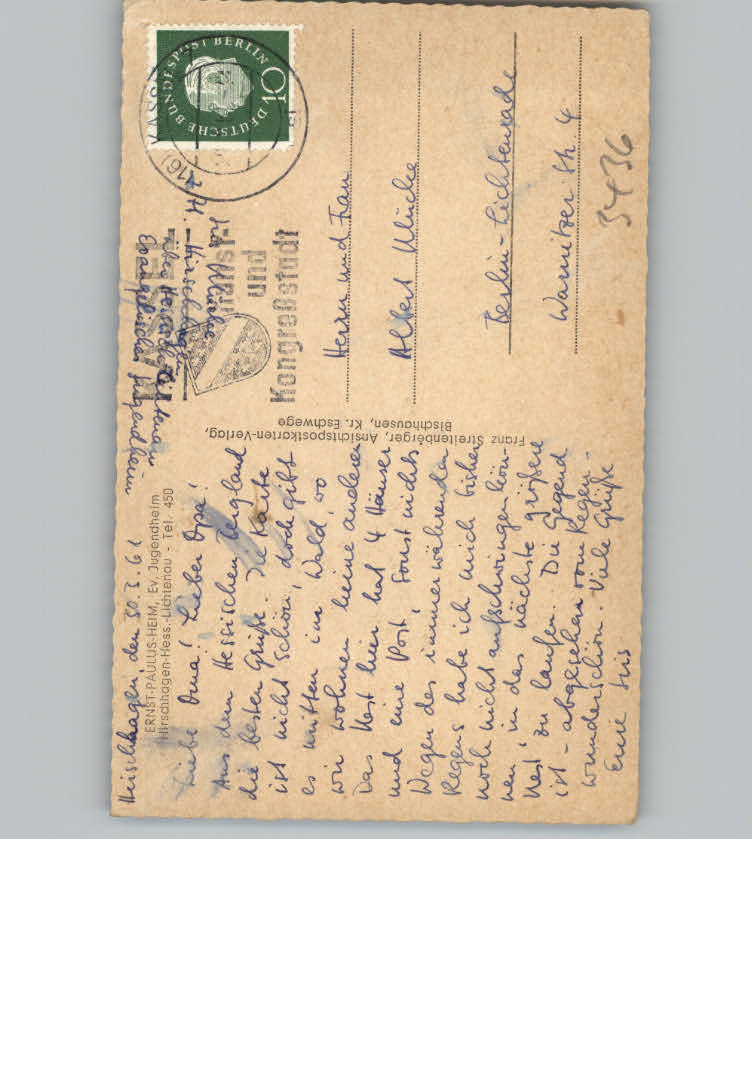 Hirschhagen, den 30.3.61
ERNST-PAULUS-HEIM, Ev. Jugendheim
Hirschhagen-Hess.-Lichtenau - Tel. 450
Liebe Oma! Lieber Opa!
Aus dem Hessischen Bergland
die besten Grüße. Die Karte
ist nicht schön, doch gibt
es mitten im Wald, wo
wir wohnen keine anderen
Das Nest hier hat 4 Häuser
und eine Post, sonst nichts
Wegen des immerwährenden
Regens habe ich mich bisher
noch nicht aufschwingen kön-
nen in das nächste größere
Nest zu laufen. Die Gegend
ist - abgesehen vom Regen -
wunderschön. Viele Grüße
Eure Iris
Franz Streitenberger, Ansichtspostkarten-Verlag,
Bischhausen, Kr. Eschwege
DEUTSCHE BUNDESPOST BERLIN
10
(16) KASSEL
und
Kongreßstadt
Hirschhagen
über Hessisch Lichtenau
Evangelisches Jugendheim
Herrn und Frau
Albert Mücke
Berlin-Lichtenrade
Warnitzer Str. 4
3436